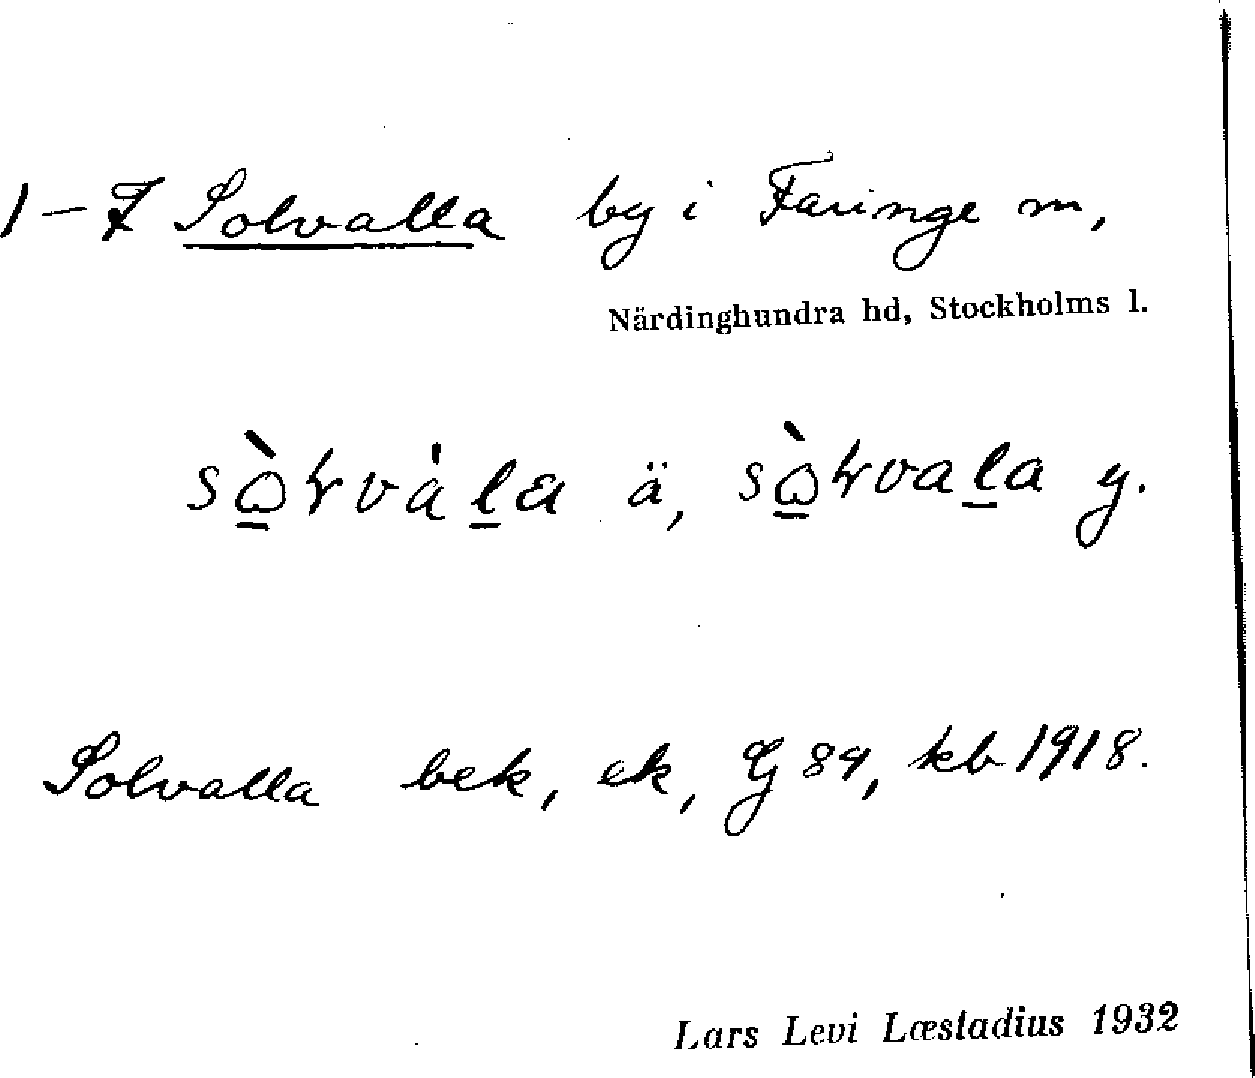 1–7 Solvalla by i Faringe sn,
Närdinghundra hd, Stockholms l.
ä, y.
Solvalla bek, ek, G 89, kb 1918.
Lars Levi Læstadius 1932